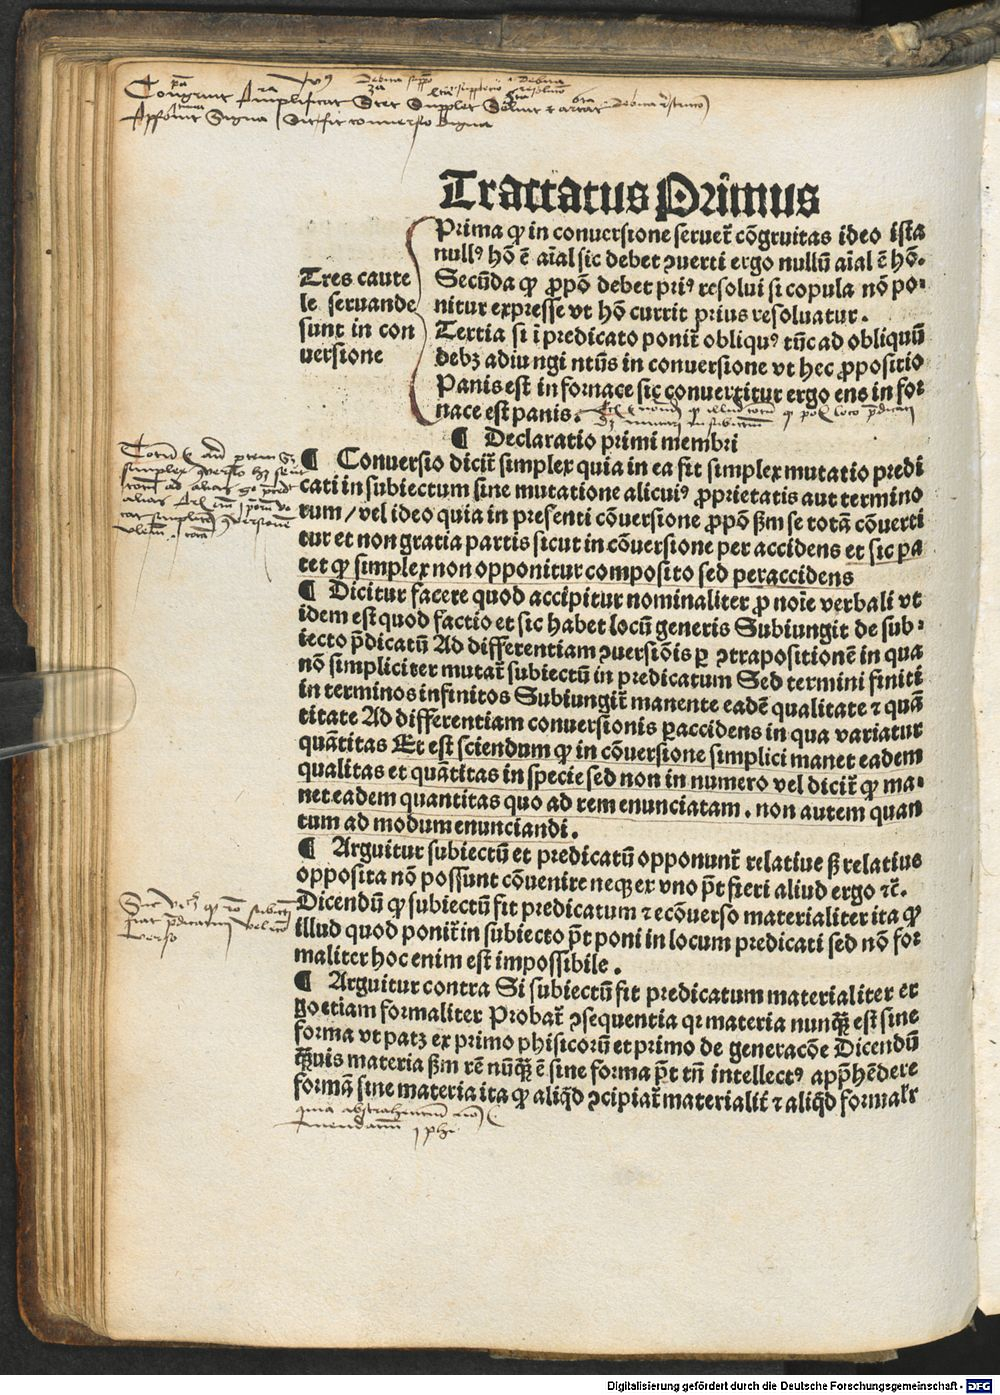 Tractatus Primus
Tres caute
le seruande
sunt in con
uersione
Prima ꝙ in conuersione seruet̃ cõgruitas ideo ista
nullꝰ hõ ẽ aĩal sic debet ꝯuerti ergo nullũ aĩal ẽ hõ.
Secũda ꝙ ꝓpõ debet priꝰ resolui si copula nõ po⸗
nitur expresse vt hõ currit prius resoluatur.
Tertia si ĩ predicato ponit̃ obliquꝰ tũc ad obliquũ
debꝫ adiungi ntũs in conuersione vt hec ꝓpositio
Panis est in fornace sic conuertitur ergo ens in for⸗
nace est panis.
¶ Declaratio primi membri
¶ Conuersio dicit̃ simplex quia in ea fit simplex mutatio predi
cati in subiectum sine mutatione alicuiꝰ ꝓprietatis aut termino
rum/ vel ideo quia in presenti cõuersione ꝓpõ ẞm se totã cõuerti
tur et non gratia partis sicut in cõuersione per accidens et sic pa
tet ꝙ simplex non opponitur composito sed peraccidens
¶ Dicitur facere quod accipitur nominaliter ꝓ noĩe verbali vt
idem est quod factio et sic habet locũ generis Subiungit de sub⸗
iecto p̃dicatũ Ad differentiam ꝯuersiõis ꝑ ꝯtrapositionẽ in qua
nõ simpliciter mutat̃ subiectũ in predicatum Sed termini finiti
in terminos infinitos Subiungit̃ manente eadẽ qualitate ⁊ quã
titate Ad differentiam conuersionis ꝑaccidens in qua variatur
quãtitas Et est sciendum ꝙ in cõuersione simplici manet eadem
qualitas et quãtitas in specie sed non in numero vel dicit̃ ꝙ ma⸗
net eadem quantitas quo ad rem enunciatam. non autem quan
tum ad modum enunciandi.
¶ Arguitur subiectũ et predicatũ opponunt̃ relatiue ẞ relatiue
opposita nõ possunt cõuenire neqꝫ ex vno p̃t fieri aliud ergo ⁊c̃.
Dicendũ ꝙ subiectũ fit predicatum ⁊ ecõuerso materialiter ita ꝙ
illud quod ponit̃ in subiecto p̃t poni in locum predicati sed nõ for
maliter hoc enim est impossibile.
¶ Arguitur contra Si subiectũ fit predicatum materialiter er
go etiam formaliter Probat̃ ꝯsequentia qꝛ materia nunq̃ꝫ est sine
forma vt patꝫ ex primo phisicorũ et primo de generacõe Dicendũ
q̃ꝫuis materia ẞm rẽ nũq̃ꝫ ẽ sine forma p̃t tñ intellectꝰ app̃hẽdere
formã sine materia ita ꝙ aliq̃d ꝯcipiat̃ materialit̃ ⁊ aliq̃d formalr̃
Digitalisierung gefördert durch die Deutsche Forschungsgemeinschaft - DFG